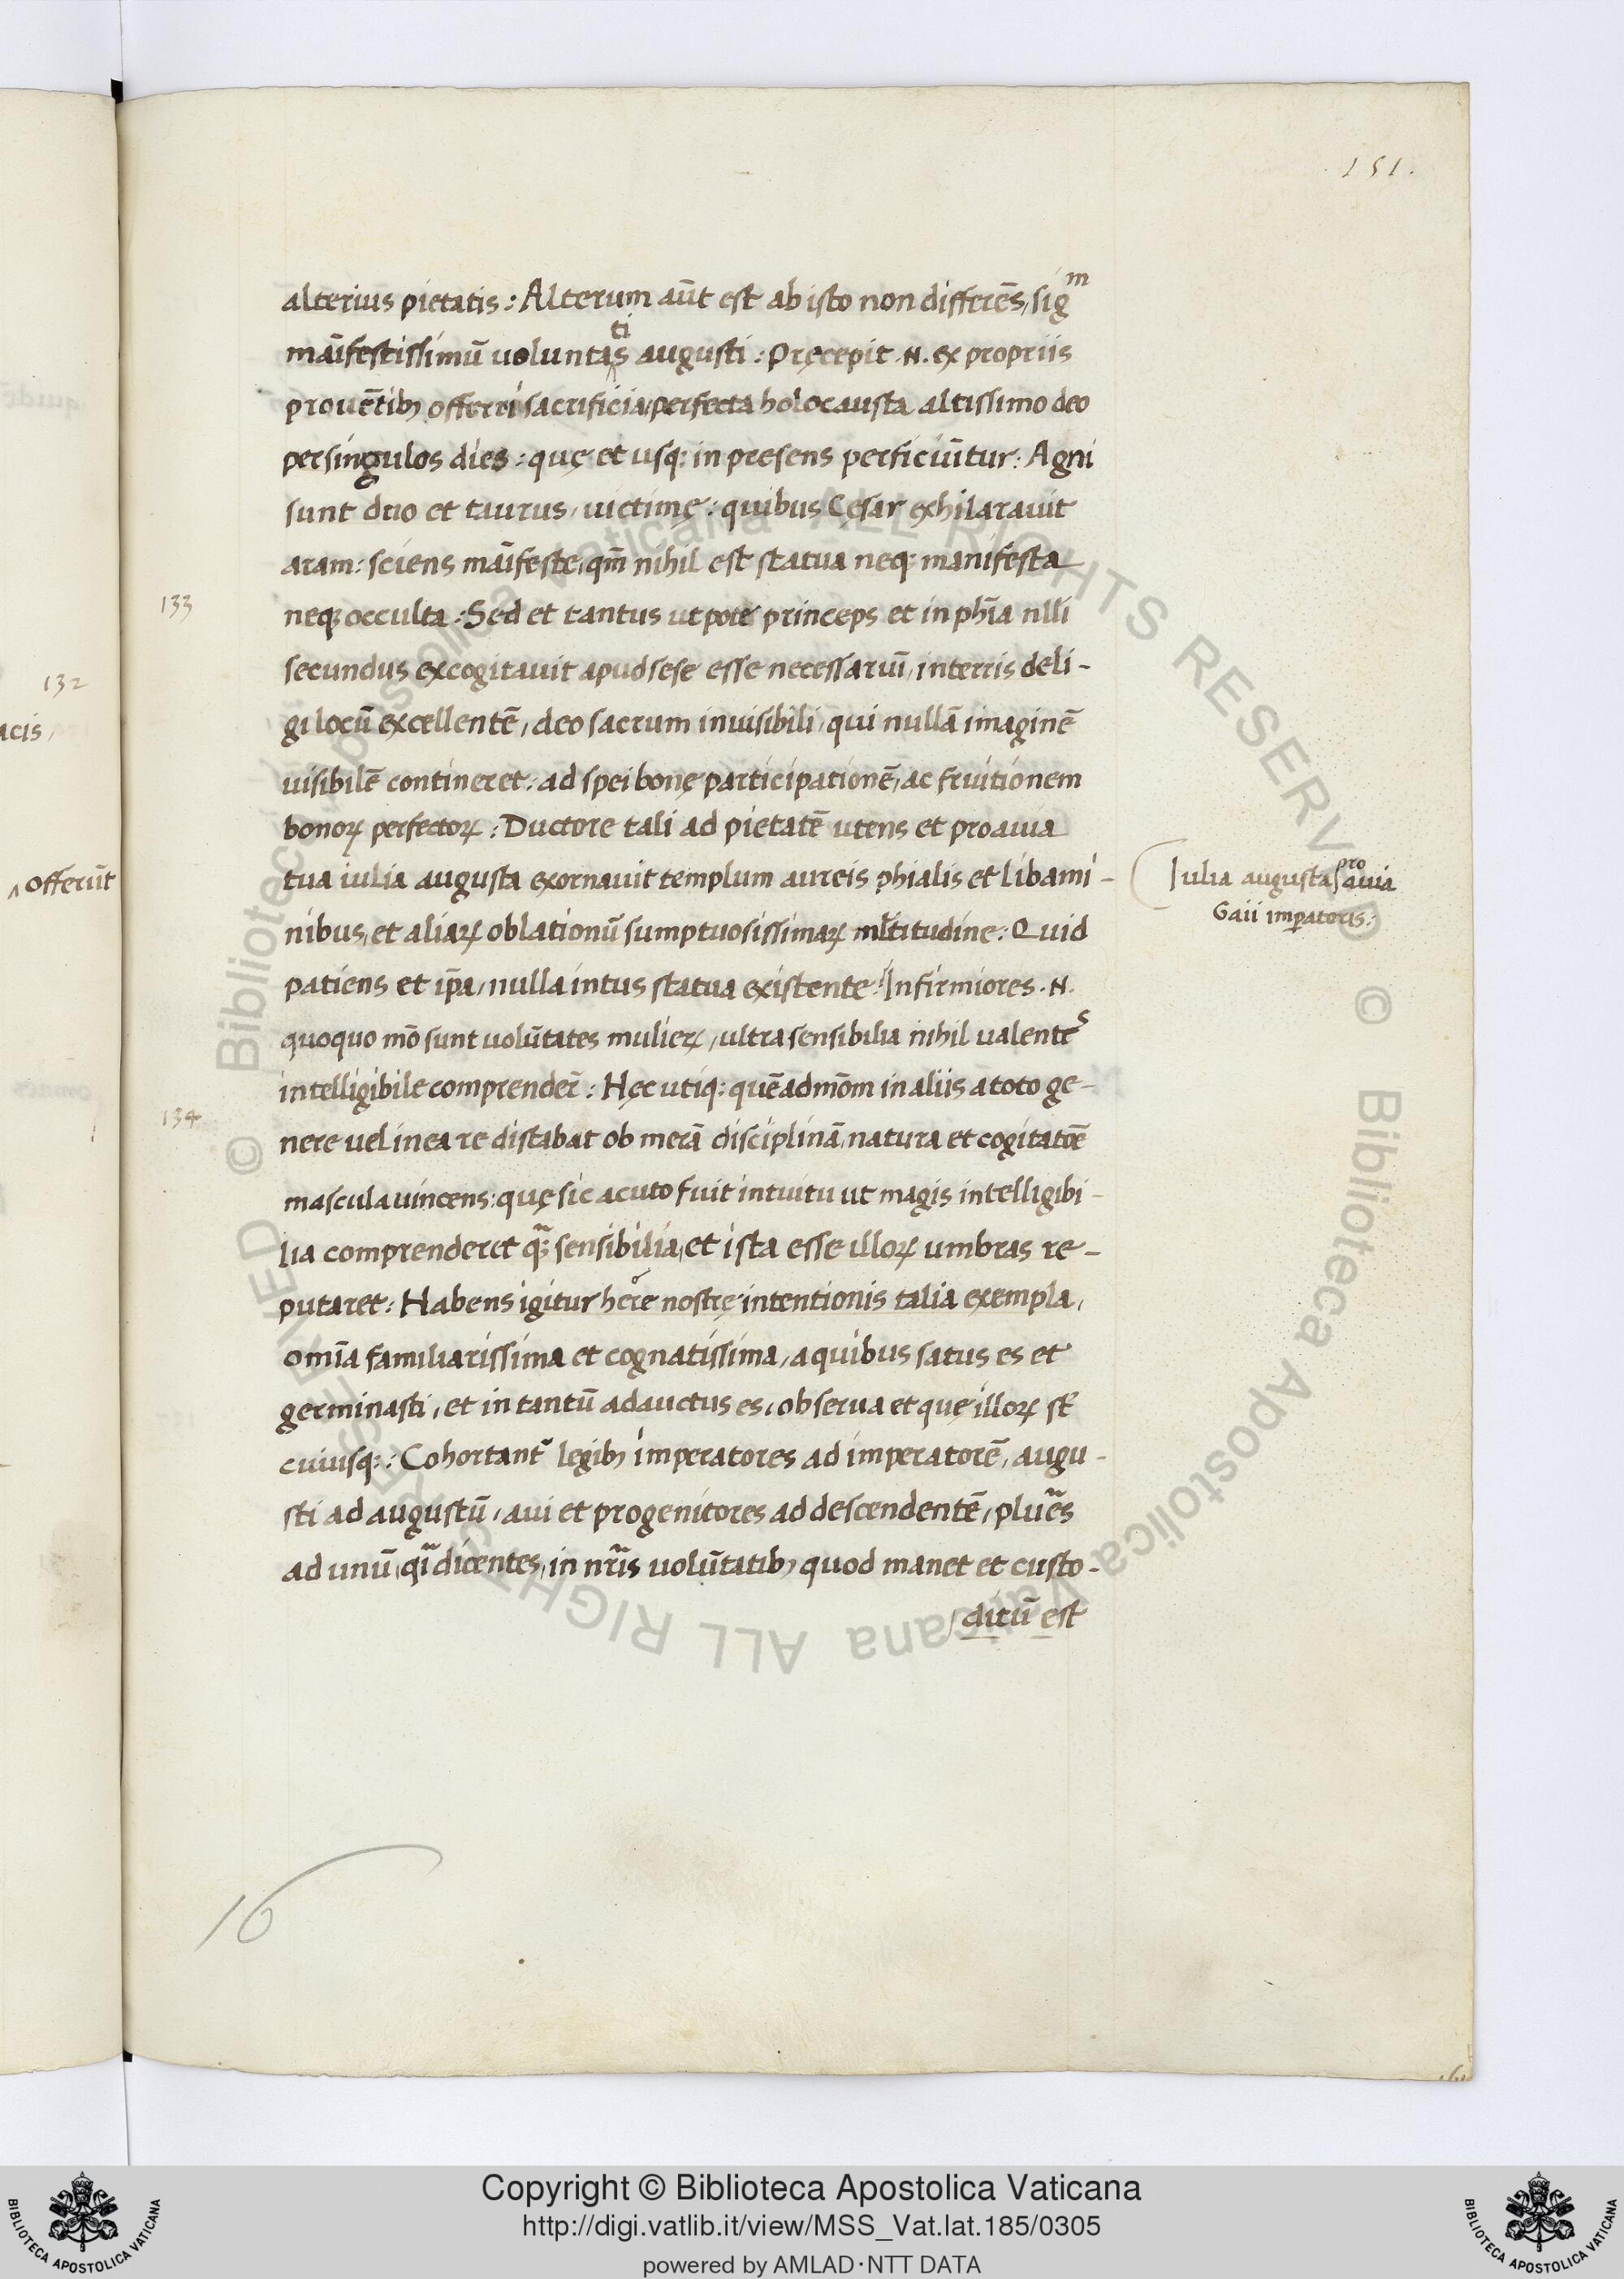 151.
alterius pietatis: Alterum aūt est ab isto non differēs, sigm
māifestissimū uoluntatis augusti: Pręcepit .N. ex propriis
prouētibꝫ offerri sacrificia perfecta holocausta altissimo deo
per singulos dies: quę et usqꝫ in presens perficiūtur: Agni
sunt duo et taurus, uictimę: quibus Cęsar exhilarauit
aram: sciens māifeste, qm̄ nihil est statua neqꝫ manifesta
133
neqꝫ occulta: Sed et tantus utpote princeps et in ph̄ia nlli
secundus excogitauit apud sese esse necessariū, in terris deli-
132
gi locū excellentē, deo sacrum inuisibili, qui nullā imaginē
acis,
uisibilē contineret: ad spei bonę participationē, ac fruitionem
bonoꝝ perfectoꝝ: Ductore tali ad pietatē utens et proauia
tua iulia augusta exornauit templum aureis phialis et libami-
offerūt
Iulia augusta proauia
Gaii imꝑatoris:
nibus, et aliaꝝ oblationū sumptuosissimaꝝ ml̄titudine: Quid
patiens et ip̄a, nulla intus statua existente: Infirmiores .N.
quoquo mō sunt uolūtates mulieꝝ, ultra sensibilia nihil ualentes
intelligibile comprender̄: Hęc utiqꝫ: quēadmōm in aliis a toto ge-
134
nere uel in ea re distabat ob merā disciplinā, natura et cogitatōe
mascula uincens: quę sic acuto fuit intuitu ut magis intelligibi-
lia comprenderet qꝫ sensibilia, et ista esse illoꝝ umbras re-
putaret: Habens igitur here nostrę intentionis talia exempla,
om̄ia familiarissima et cognatissima, a quibus satus es et
germinasti, et in tantū adauctus es, obserua et quę illoꝝ st̄
cuiusqꝫ: Cohortant᷑ legibꝫ imperatores ad imperatorē, augu-
sti ad augustū, aui et progenitores ad descendentē, plures
ad unū, q̄i dicentes, in nr̄is uolūtatibꝫ quod manet et custo-
ditū est
16
Copyright © Biblioteca Apostolica Vaticana
http://digi.vatlib.it/view/MSS_Vat.lat.185/0305
powered by AMLAD·NTT DATA
BIBLIOTECA APOSTOLICA VATICANA
BIBLIOTECA APOSTOLICA VATICANA
© Biblioteca Apostolica Vaticana ALL RIGHTS RESERVED © Biblioteca Apostolica Vaticana ALL RIGHTS RESERVED